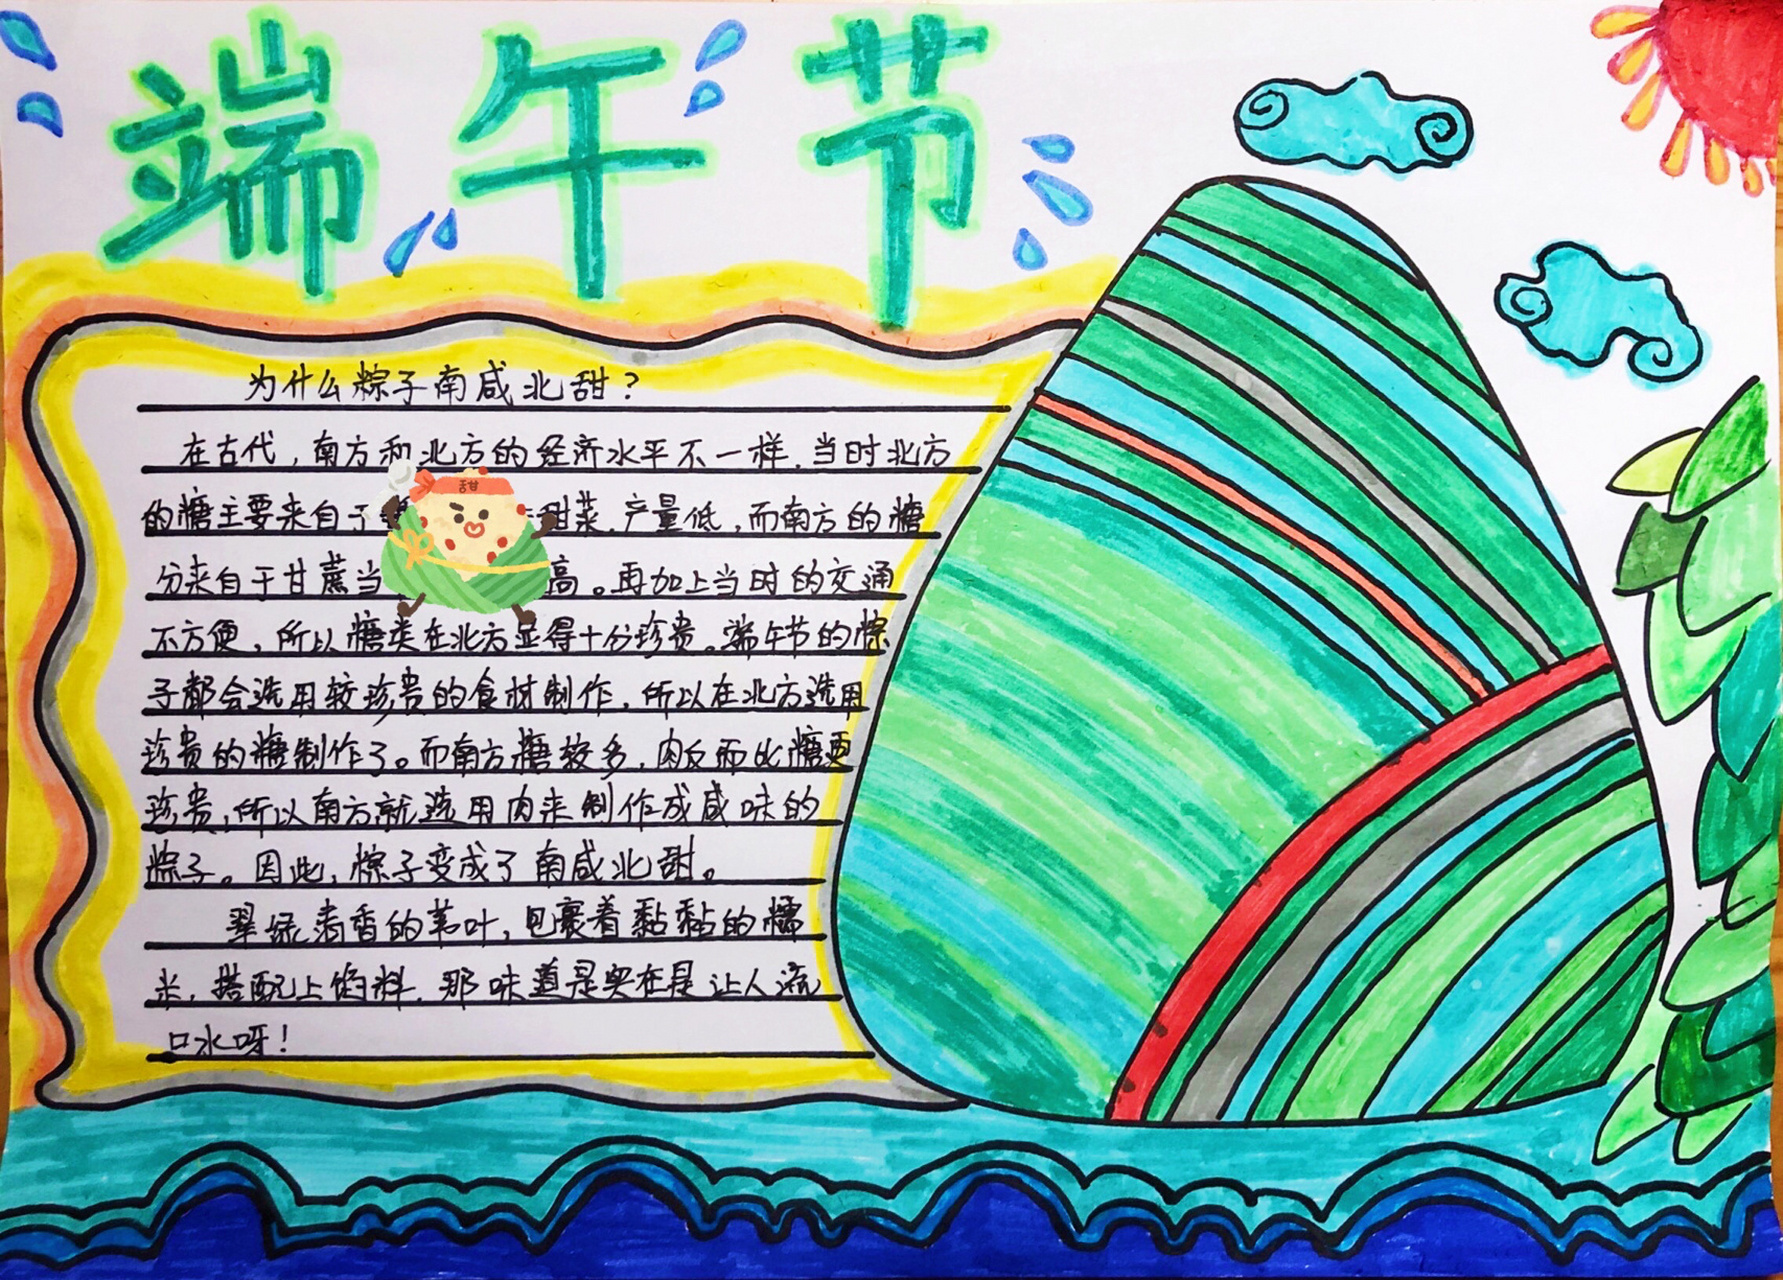 端午节
为什么粽子南咸北甜？
在古代，南方和北方的经济水平不一样，当时北方
的糖主要来自于甜菜，产量低，而南方的糖
甜
分来自于甘蔗当高。再加上当时的交通
不方便，所以糖类在北方显得十分珍贵。端午节的粽
子都会选用较珍贵的食材制作，所以在北方选用
珍贵的糖制作了。而南方糖较多，肉反而比糖更
珍贵，所以南方就选用肉来制作成咸味的
粽子。因此，粽子变成了南咸北甜。
翠绿清香的苇叶，包裹着黏黏的糯
米，搭配上馅料，那味道是实在是让人流
口水呀！